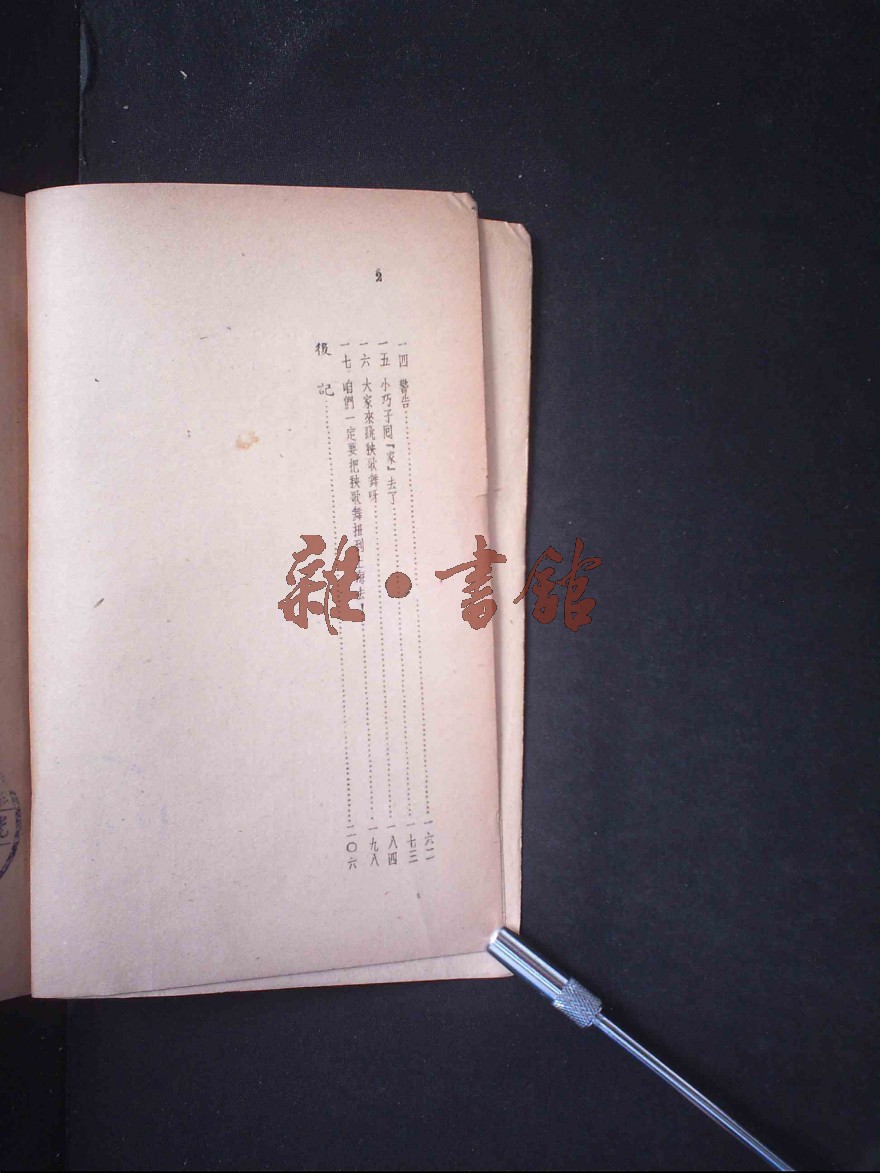 2
一四 警告……一六二
一五 小巧子囘『家』去了……一七三
一六 大家來跳秧歌舞呀……一八四
一七 咱們一定要把秧歌舞扭到上海去……一九八
後記……二〇六
雜·書舘